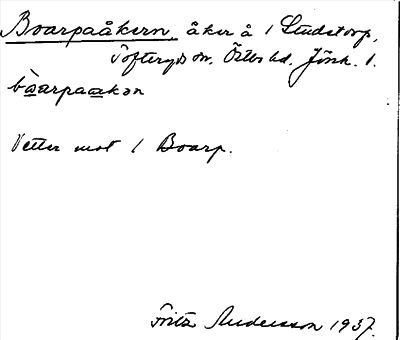 Boarpaåkern, åker å 1 Ludstorp,
Tofteryds sn. Östbo hd. Jönk. l.
bàarpaakən
Vetter mot 1 Boarp.
Fritz Andersson 1937.